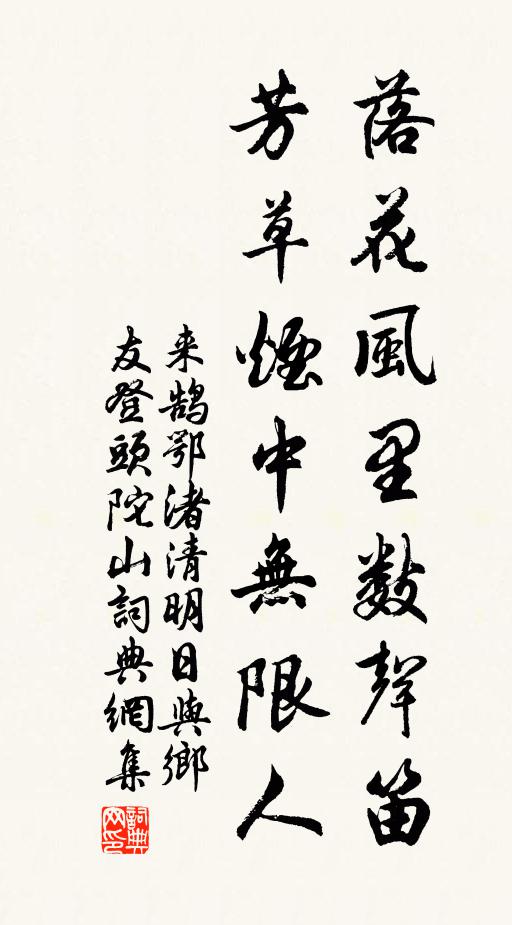 落花風里數聲笛
芳草煙中無限人
来鹄鄂渚清明日與鄉
友登頭陀山詞典網集
詞典
网印